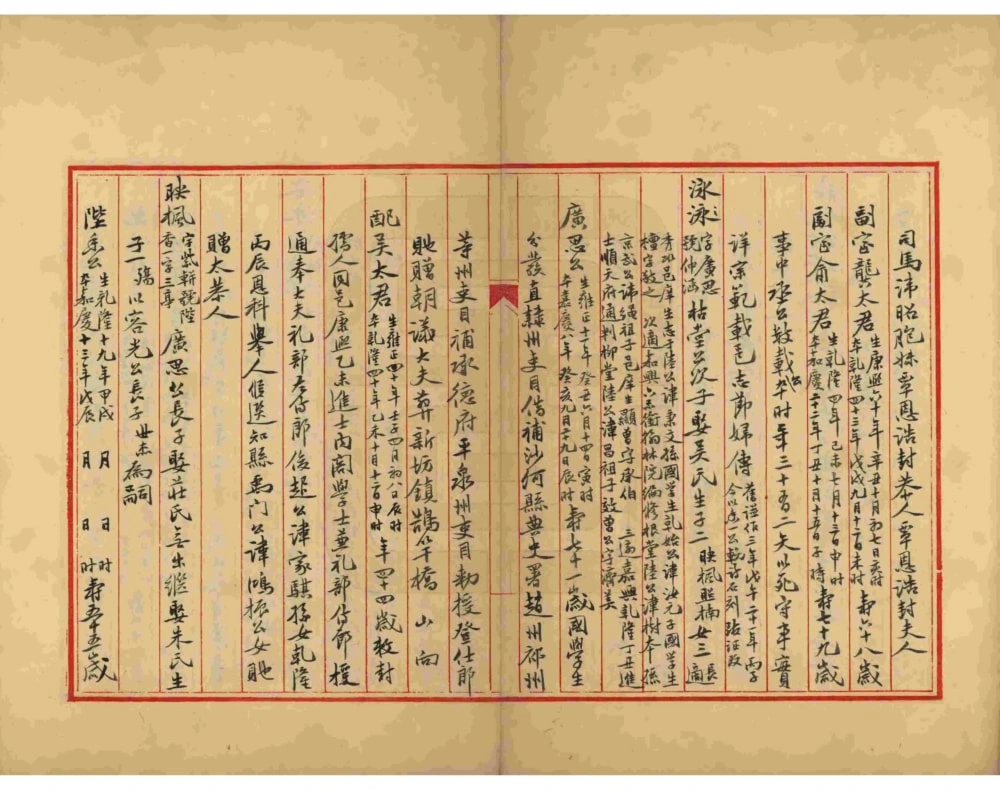 司馬諱昭胞妹覃恩誥封恭人覃恩誥封夫人
副室龍太君 生康熙六十年辛丑十月初七日亥時 卒乾隆四十三年戊戌九月十二日未時 壽六十八歲
副室俞太君 生乾隆四年己未七月十三日申時 卒嘉慶二十二年丁丑十月十五日子時 壽七十九歲
事中丞公數載公卒时年三十有二矢以死守事實
詳宗範載邑志節婦傳
泳泳之字廣思號仲滿 枯堂公次子娶吳氏生子二 映楓 照楠 女三 長適
秀水邑庠生志于陸公諱秉文孫國學生乾始公諱汝元子國學生
檀字敦之 次適嘉興 翰林院編修根堂陸公諱樹本孫
京武公諱纘祖子邑庠生顯曾字承伯 三適嘉興乾隆丁丑進
士順天府通判柳堂陸公諱昌祖子敦曾公字濟美
廣思公 生雍正十一年癸丑六月十四日寅时 卒嘉慶八年癸亥九月十九日辰时 壽七十一歲國學生
分發直隸州吏目借補沙河縣典史署趙州祁州
等州吏目補承德府平泉州吏目勅授登仕郎
貤贈朝議大夫葬新坊鎮鵲竿橋 山 向
配吳太君 生雍正十年壬子四月初八日辰时 卒乾隆四十年乙未十月十一日申时 年四十四歲敕封
孺人同邑康熙乙未進士內閣學士兼礼部侍郎授
通奉大夫礼部左侍郎俊起公諱家騏孫女乾隆
丙辰恩科舉人候選知縣禹門公諱鳴振公女貤
贈太恭人
映楓 字紫軒號陛香一字三亭 廣思公長子娶莊氏無出繼娶朱氏生
子一殤以容光公長子世杰為嗣
陛香公 生乾隆十九年甲戌 月 日 时 卒嘉慶十三年戊辰 月 日 时 壽五十五歲